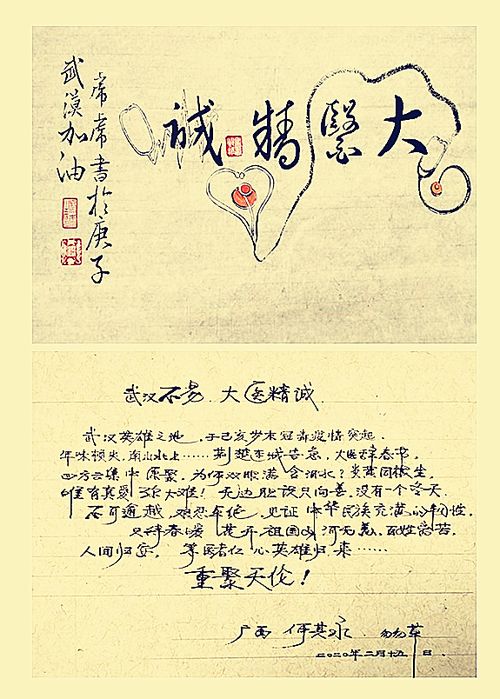 大醫精誠
書於庚子
武漢加油
武汉不易.大医精诚.
武汉英雄之地,于己亥岁末冠毒疫情突起.
年味顿失,南北上……荆楚城告急,大医辞春节.
四方云集中原聚,为何双眼满含泪水?炎黄同根生.
唯有真爱大难!无边只向善,没有一个冬天
不可逾越 见证中华民族充满的韧性.
只待春暖 花开祖国山河无恙,百姓
人间归安. 等医者仁心英雄归来……
重聚天伦!
广西 何其永 匆草
二〇二〇年二月十五日.